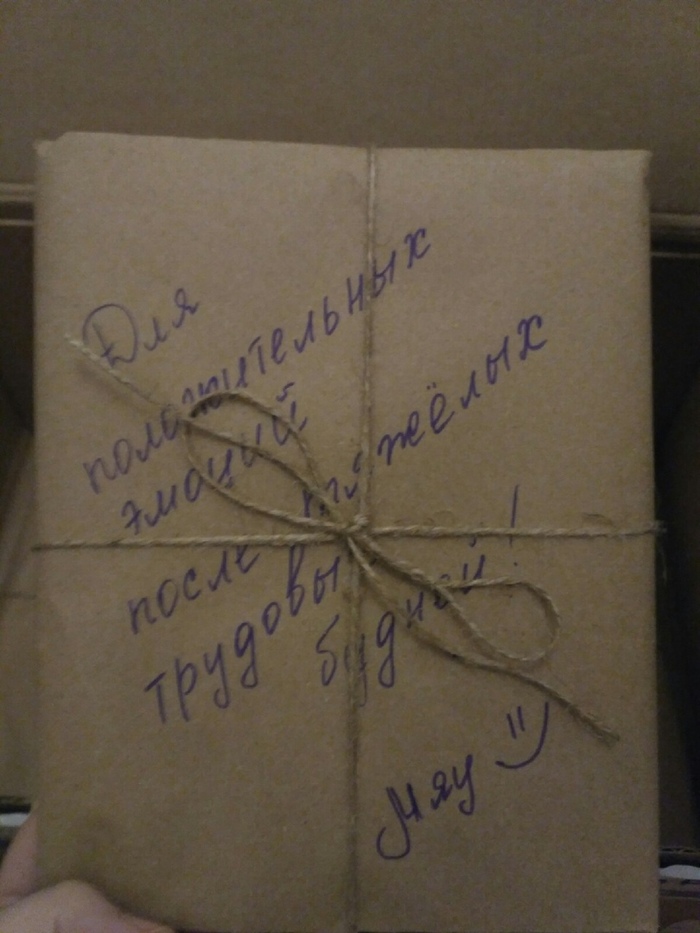 Для
положительных
эмоций
после тяжёлых
трудовых
будней!
Мяу =)